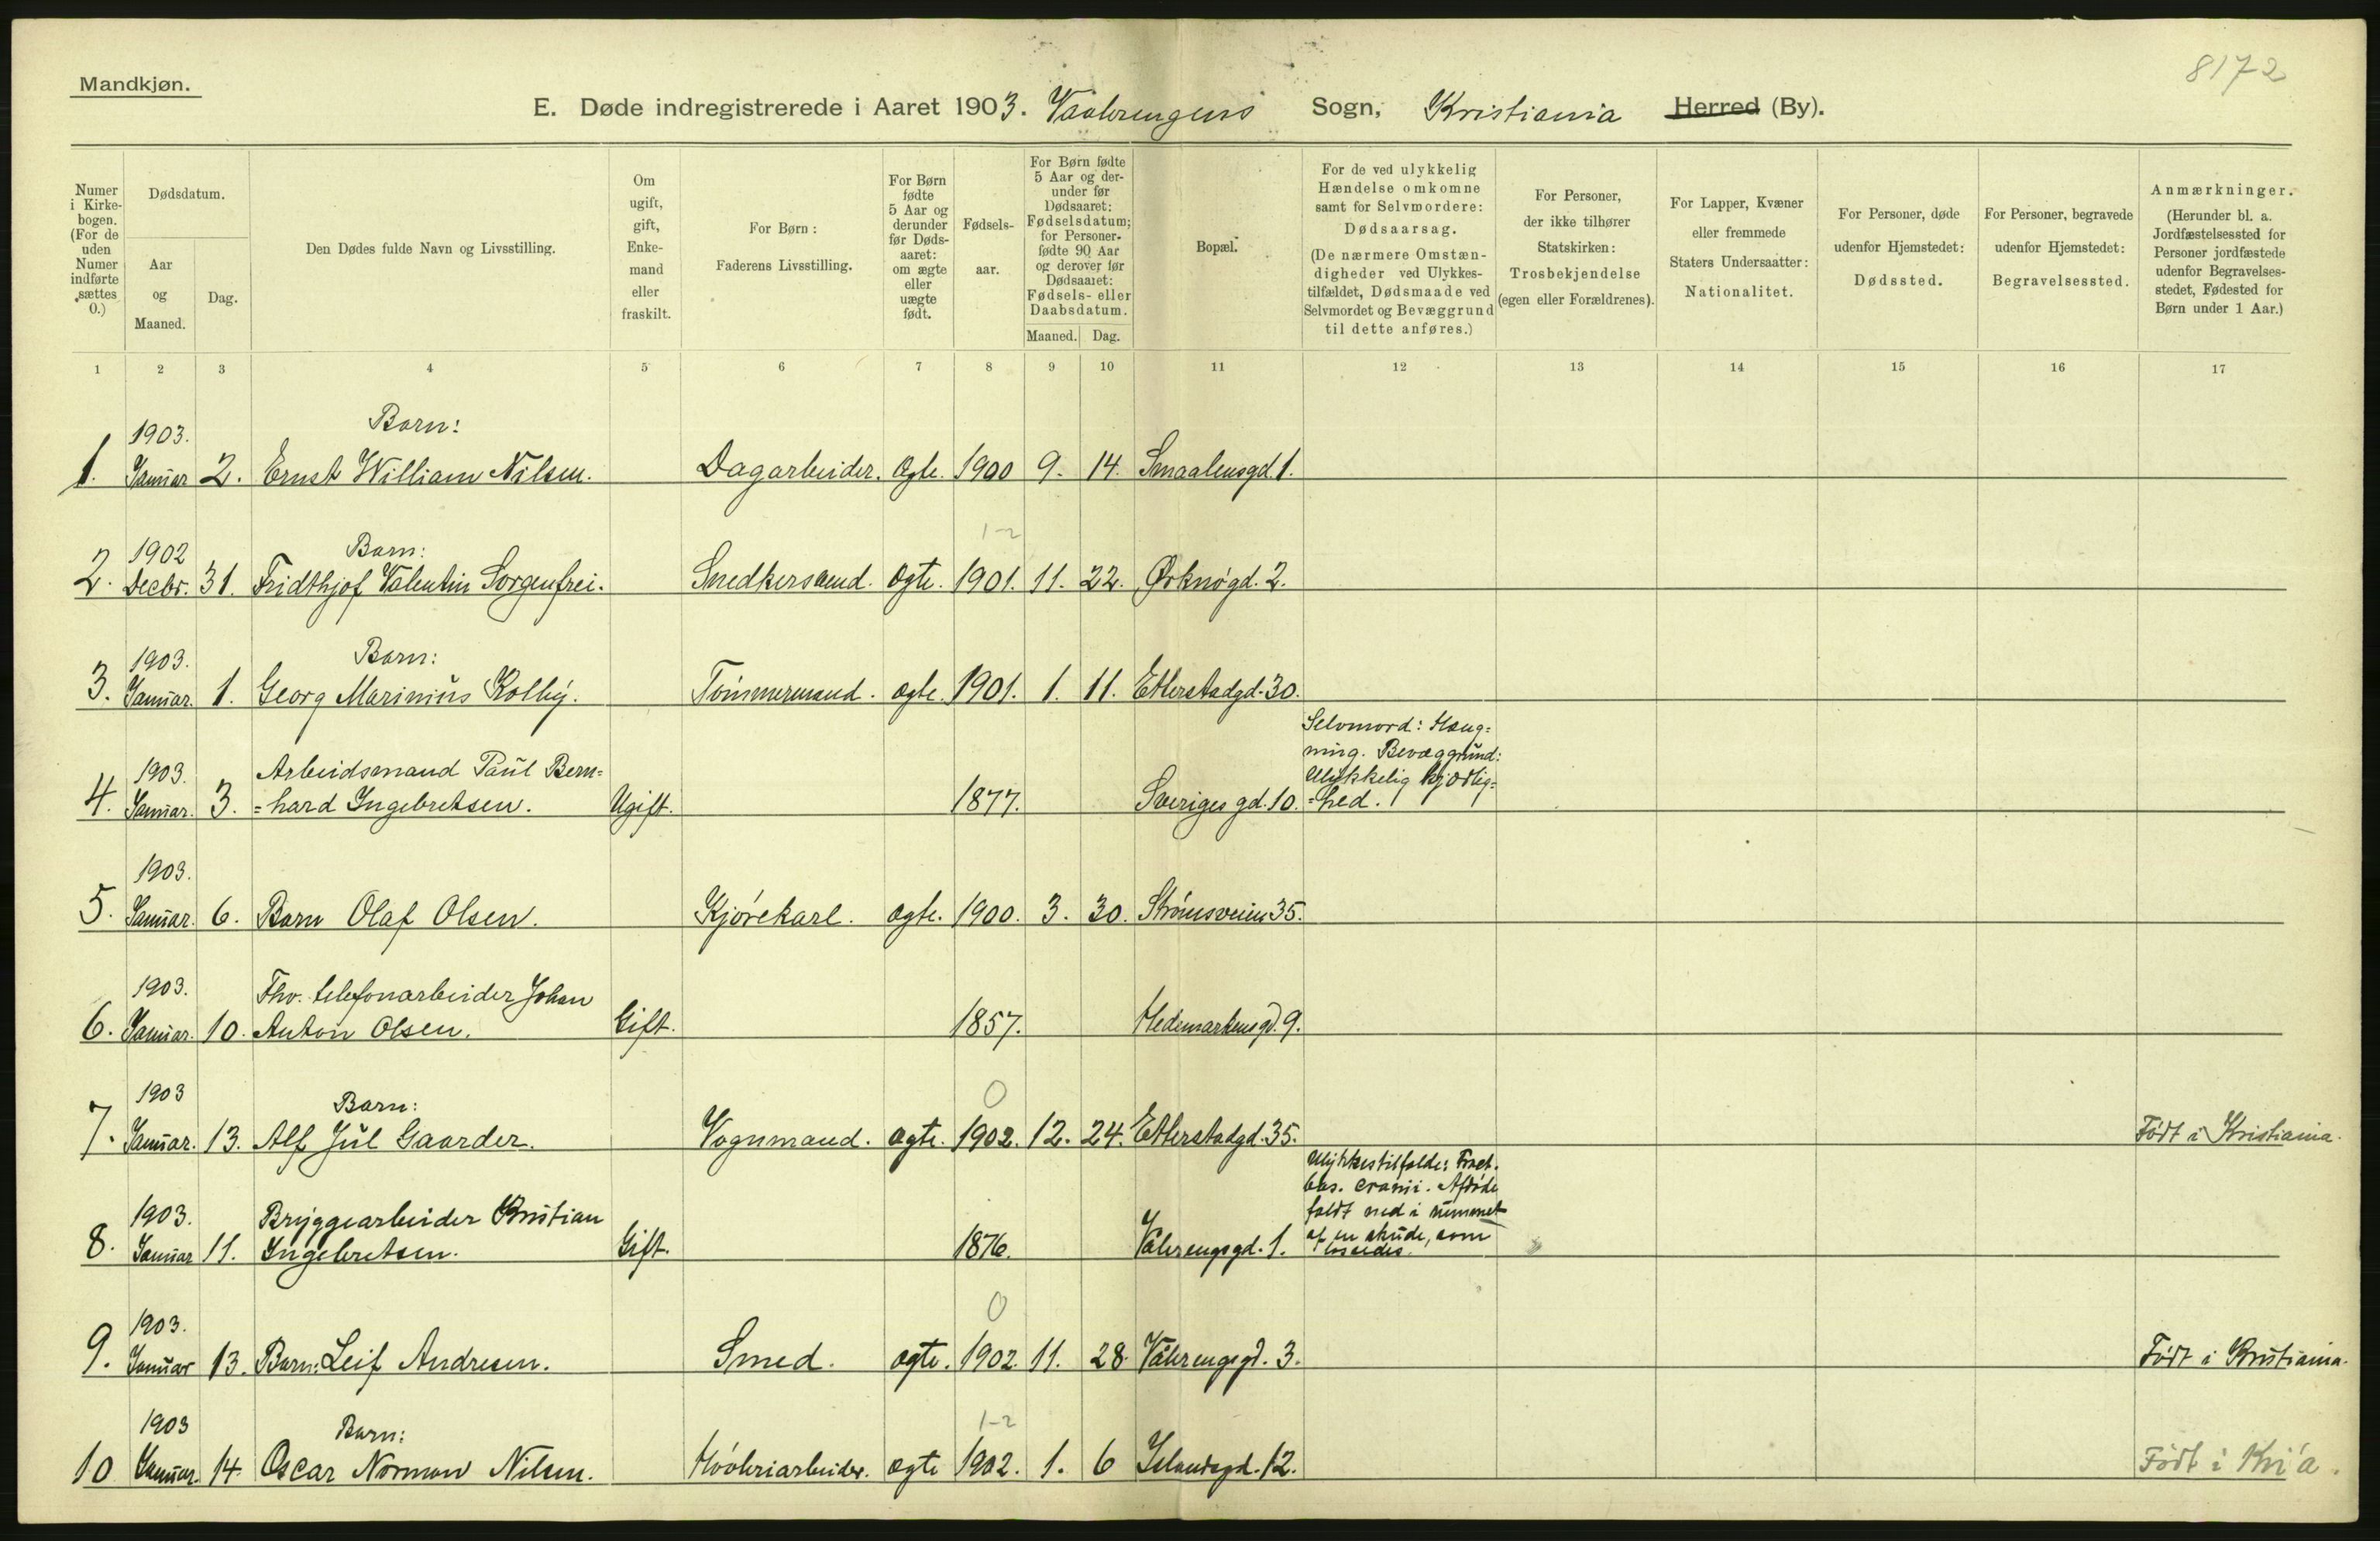 8172
Mandkjøn.
E. Døde indregistrerede i Aaret 1903. Vaalerengens Sogn, Kristiania Herred (By).
Numer i Kirke-bogen. (For de uden Numer indførte sættes 0.)
Dødsdatum.
Aar og Maaned.
Dag.
Den Dødes fulde Navn og Livsstilling.
Om ugift, gift, Enke-mand eller fraskilt.
For Børn: Faderens Livsstilling.
For Børn fødte 5 Aar og derunder før Døds-aaret: om ægte eller uægte født.
Fødsels-aar.
For Børn fødte 5 Aar og der-under før Dødsaaret: Fødselsdatum; for Personer fødte 90 Aar og derover før Dødsaaret: Fødsels- eller Daabsdatum.
Maaned. Dag.
Bopæl.
For de ved ulykkelig Hændelse omkomne samt for Selvmordere: Dødsaarsag. (De nærmere Omstæn-digheder ved Ulykkes-tilfældet, Dødsmaade ved Selvmordet og Bevæggrund til dette anføres.)
For Personer, der ikke tilhører Statskirken: Trosbekjendelse (egen eller Forældrenes).
For Lapper, Kvæner eller fremmede Staters Undersaatter: Nationalitet.
For Personer, døde udenfor Hjemstedet: Dødssted.
For Personer, begravede udenfor Hjemstedet: Begravelsessted.
Anmærkninger. (Herunder bl. a. Jordfæstelsessted for Personer jordfæstede udenfor Begravelses-stedet, Fødested for Børn under 1 Aar.)
1 2 3 4 5 6 7 8 9 10 11 12 13 14 15 16 17
1903. Barn:
1. Januar 2. Ernst William Nilsen. Dagarbeider. Ægte. 1900 9. 14. Smaalensgd. 1.
1902 Barn: 1-2
2. Decbr. 31. Fridthjof Valentin Sorgenfrei. Snedkersvend. ægte. 1901. 11. 22. Ørknøgd. 2.
1903. Barn:
3. Januar. 1. Georg Marinius Kolby. Tömmermand. ægte. 1901. 1. 11. Etterstadgd. 30.
Selvmord: Hæng=
ning. Bevæggrund:
1903. Arbeidsmand Paul Bern= Ulykkelig kjærlig=
4. Januar. 3. =hard Ingebretsen. Ugift. 1877. Sveriges gd. 10. =hed.
1903.
5. Januar. 6. Barn Olaf Olsen. Kjørekarl. ægte. 1900. 3. 30. Strömsveien 35.
1903. Fhv. telefonarbeider Johan
6. Januar. 10. Anton Olsen. Gift. 1857. Hedemarkens gd. 9.
1903 Barn: 0
7. Januar. 13. Alf Jul Gaarder. Vognmand. ægte. 1902. 12. 24. Etterstadgd. 35. Født i Kristiania.
Ulykkestilfælde: Fract.
bas. cranii. Afdøde
1903. Bryggearbeider Kristian faldt ned i rummet
8. Januar 11. Ingebretsen. Gift. 1876. Vålerengsgd. 1. af en skude, som
lossedes.
1903. 0
9. Januar 13. Barn: Leif Andresen. Smed. ægte. 1902 11. 28. Vålerengsgd. 3. Født i Kristiania.
1903 Barn: 1-2
10 Januar. 14. Oscar Norman Nilsen. Høvleriarbeider. ægte 1902. 1. 6 Islandsgd. 12. Født i Kri'a.